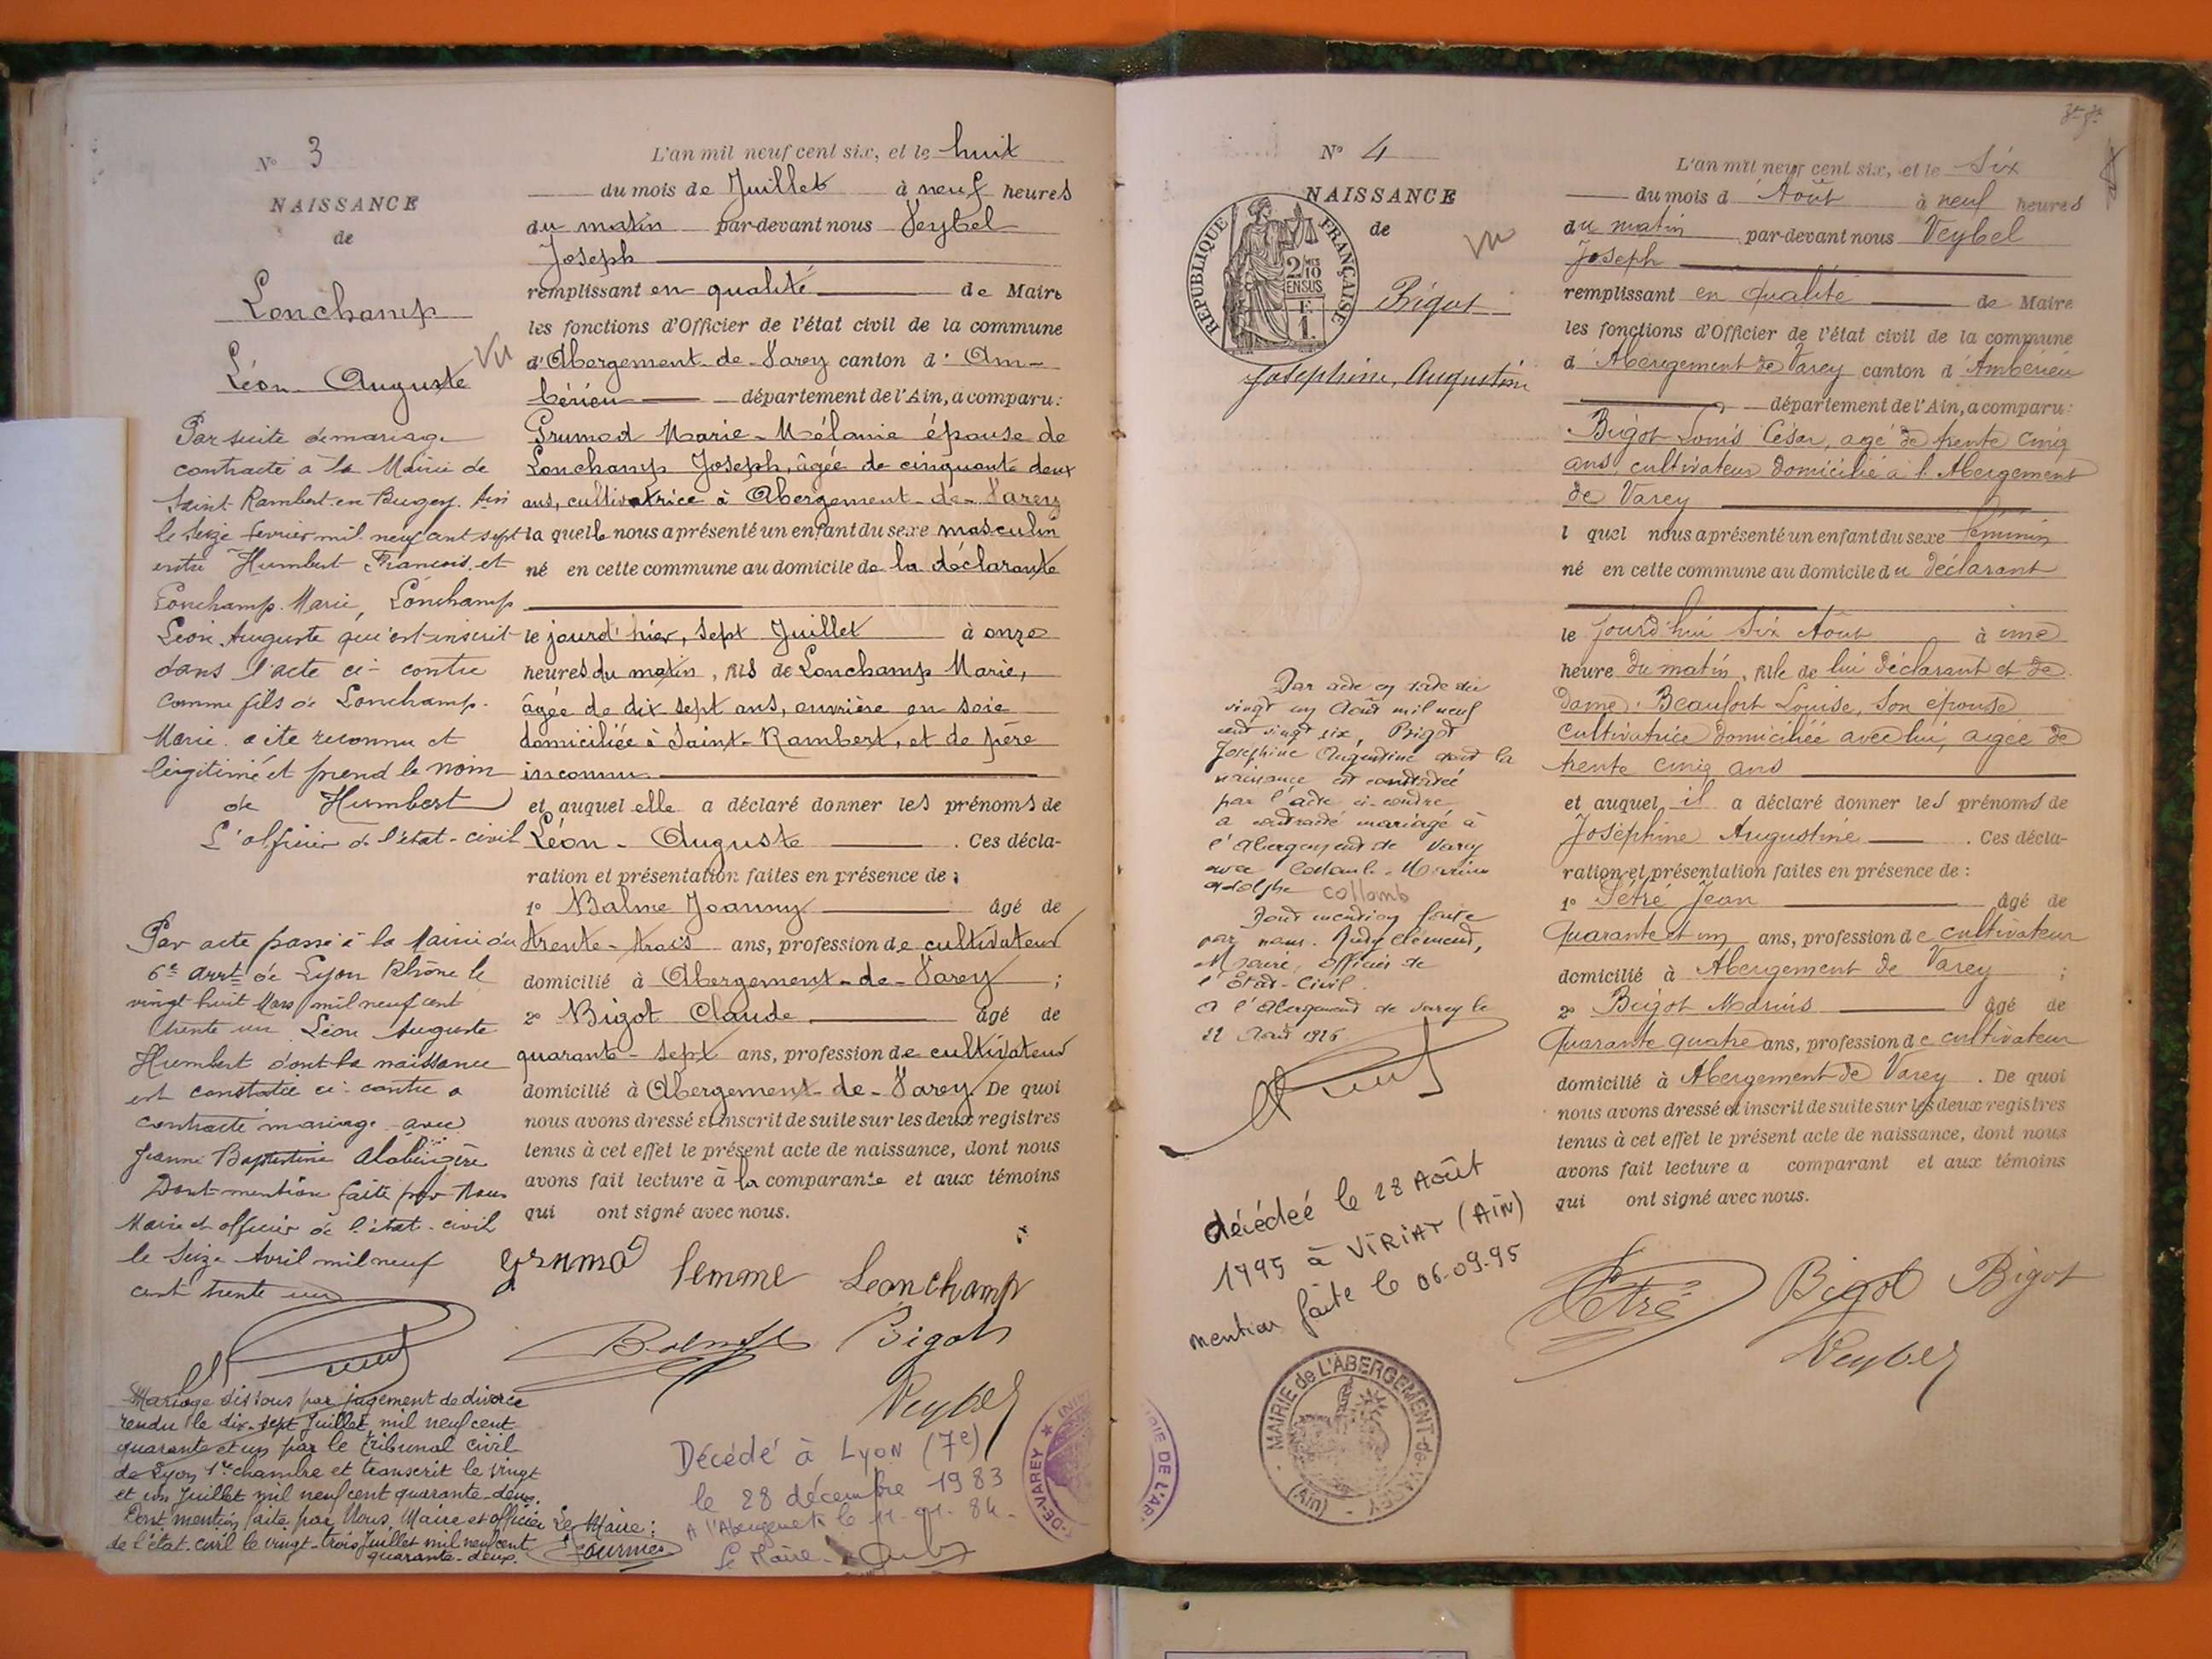 N° 3
NAISSANCE
de
Lonchamp
Léon Auguste
Vu
Par suite de mariage
contracté à la Mairie de
Saint-Rambert-en-Bugey. Ain
le seize fevrier mil neuf cent sept
entre Humbert François et
Lonchamp Marie, Lonchamp
Léon Auguste qui est inscrit
dans l'acte ci-contre
comme fils de Lonchamp
Marie a été reconnu et
légitimé et prend le nom
de Humbert
L'officier de l'état-civil
Par acte passé à la Mairie du
6e arrt de Lyon Rhône le
vingt huit Mars mil neuf cent
trente un Léon Auguste
Humbert dont la naissance
est constatée ci-contre a
contracté mariage avec
Jeanne Baptistine
Dont mention faite par Nous
Maire et officier de l'état-civil
le seize Avril mil neuf
cent trente un
Mariage dissous par jugement de divorce
rendu le dix-sept Juillet mil neuf cent
quarante et un par le tribunal civil
de Lyon 1re chambre et transcrit le vingt
et un Juillet mil neuf cent quarante-deux.
Dont mention faite par Nous, Maire et officier
de l'état-civil le vingt-trois Juillet mil neuf cent
quarante-deux.
Le Maire:
L'an mil neuf cent six, et le huit
du mois de Juillet à neuf heures
du matin par-devant nous Veybel
Joseph
remplissant en qualité de Maire
les fonctions d'Officier de l'état civil de la commune
d'Abergement-de-Varey canton d'Am-
bérieu département de l'Ain, a comparu:
Grumod Marie-Mélanie épouse de
Lonchamp Joseph, âgée de cinquante deux
ans, cultivatrice à Abergement-de-Varey
la quelle nous a présenté un enfant du sexe masculin
né en cette commune au domicile de la déclarante
le jourd'hier, sept Juillet à onze
heures du matin, fils de Lonchamp Marie,
âgée de dix sept ans, ouvrière en soie
domiciliée à Saint-Rambert, et de père
inconnu
et auquel elle a déclaré donner les prénoms de
Léon-Auguste. Ces décla-
ration et présentation faites en présence de:
1° Balme Joanny âgé de
trente-trois ans, profession de cultivateur
domicilié à Abergement-de-Varey;
2° Bigot Claude âgé de
quarante-sept ans, profession de cultivateur
domicilié à Abergement-de-Varey. De quoi
nous avons dressé et inscrit de suite sur les deux registres
tenus à cet effet le présent acte de naissance, dont nous
avons fait lecture à la comparante et aux témoins
qui ont signé avec nous.
femme Leonchamp
Bigot
Veybel
Décédé à Lyon (7e)
le 28 décembre 1983
Le Maire
N° 4
NAISSANCE
de
Vu
REPUBLIQUE FRANÇAISE
2/10 EN SUS
F
1.
Bigot
Joséphine, Augustine
Par acte en date du
vingt un Août mil neuf
cent vingt six, Bigot
Joséphine Augustine dont la
naissance est constatée
par l'acte ci-contre
a contracté mariage à
l'Abergement de Varey
avec
Adolphe Collomb
Dont mention faite
par nous. Judy Clément,
Maire, officier de
l'Etat-Civil.
A l'Abergement de Varey le
22 Août 1926
décédée le 28 Août
1995 à VIRIAT (AIN)
mention faite le 06-09-95
MAIRIE de L'ABERGEMENT-de-VAREY
(Ain)
L'an mil neuf cent six, et le Six
du mois d'Août à neuf heures
du matin par-devant nous Veybel
Joseph
remplissant en qualité de Maire
les fonctions d'Officier de l'état civil de la commune
d'Abergement de Varey canton d'Ambérieu
département de l'Ain, a comparu:
Bigot Louis César, âgé de trente cinq
ans, cultivateur domicilié à l'Abergement
de Varey
l quel nous a présenté un enfant du sexe féminin
né en cette commune au domicile du déclarant
le jourd'hui six Août à une
heure du matin, fille de lui déclarant et de
dame Beaufort Louise, son épouse
cultivatrice domiciliée avec lui, âgée de
trente cinq ans
et auquel il a déclaré donner les prénoms de
Joséphine Augustine. Ces décla-
ration et présentation faites en présence de:
1° Jean âgé de
Quarante et un ans, profession de cultivateur
domicilié à Abergement de Varey;
2° Bigot Marius âgé de
Quarante quatre ans, profession de cultivateur
domicilié à Abergement de Varey. De quoi
nous avons dressé et inscrit de suite sur les deux registres
tenus à cet effet le présent acte de naissance, dont nous
avons fait lecture a comparant et aux témoins
qui ont signé avec nous.
Bigot Bigot
Veybel